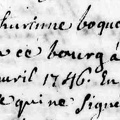 hurinne boque
ce bourg a
avril 1746. En
quine Signe